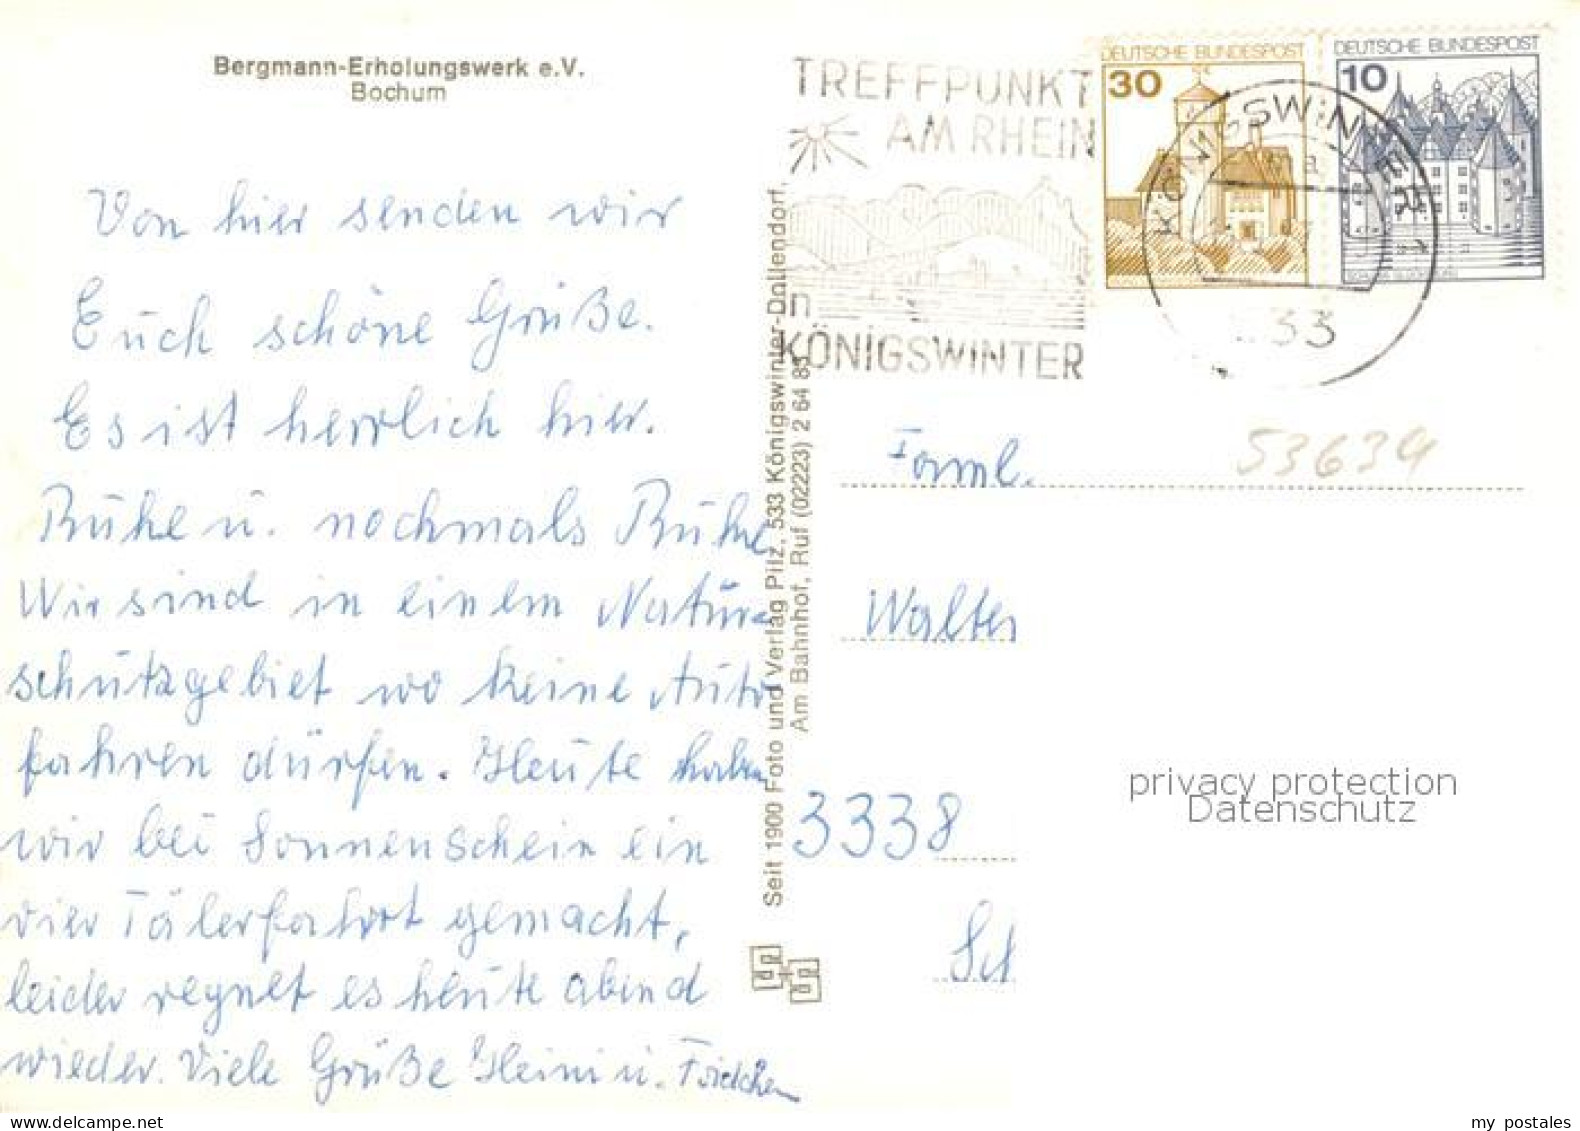 Bergmann-Erholungswerk e.V.
Bochum
Von hier senden wir
Euch schöne Grüße.
Es ist herrlich hier.
Ruhe u. nochmals Ruhe.
Wir sind in einem Natur-
schutzgebiet wo keine Auto
fahren dürfen. Heute haben
wir bei Sonnenschein ein
vier Tälerfahrt gemacht,
leider regnet es heute abend
wieder. Viele Grüße Heini u. Friedchen
Seit 1900 Foto und Verlag Pilz, 533 Königswinter-Dollendorf,
Am Bahnhof, Ruf (02223) 2 64 85
TREFFPUNKT
AM RHEIN
in
KÖNIGSWINTER
DEUTSCHE BUNDESPOST
30
DEUTSCHE BUNDESPOST
10
KÖNIGSWINTER 1
533
53639
Faml.
Walter
3338
Sch
privacy protection
Datenschutz
my postales